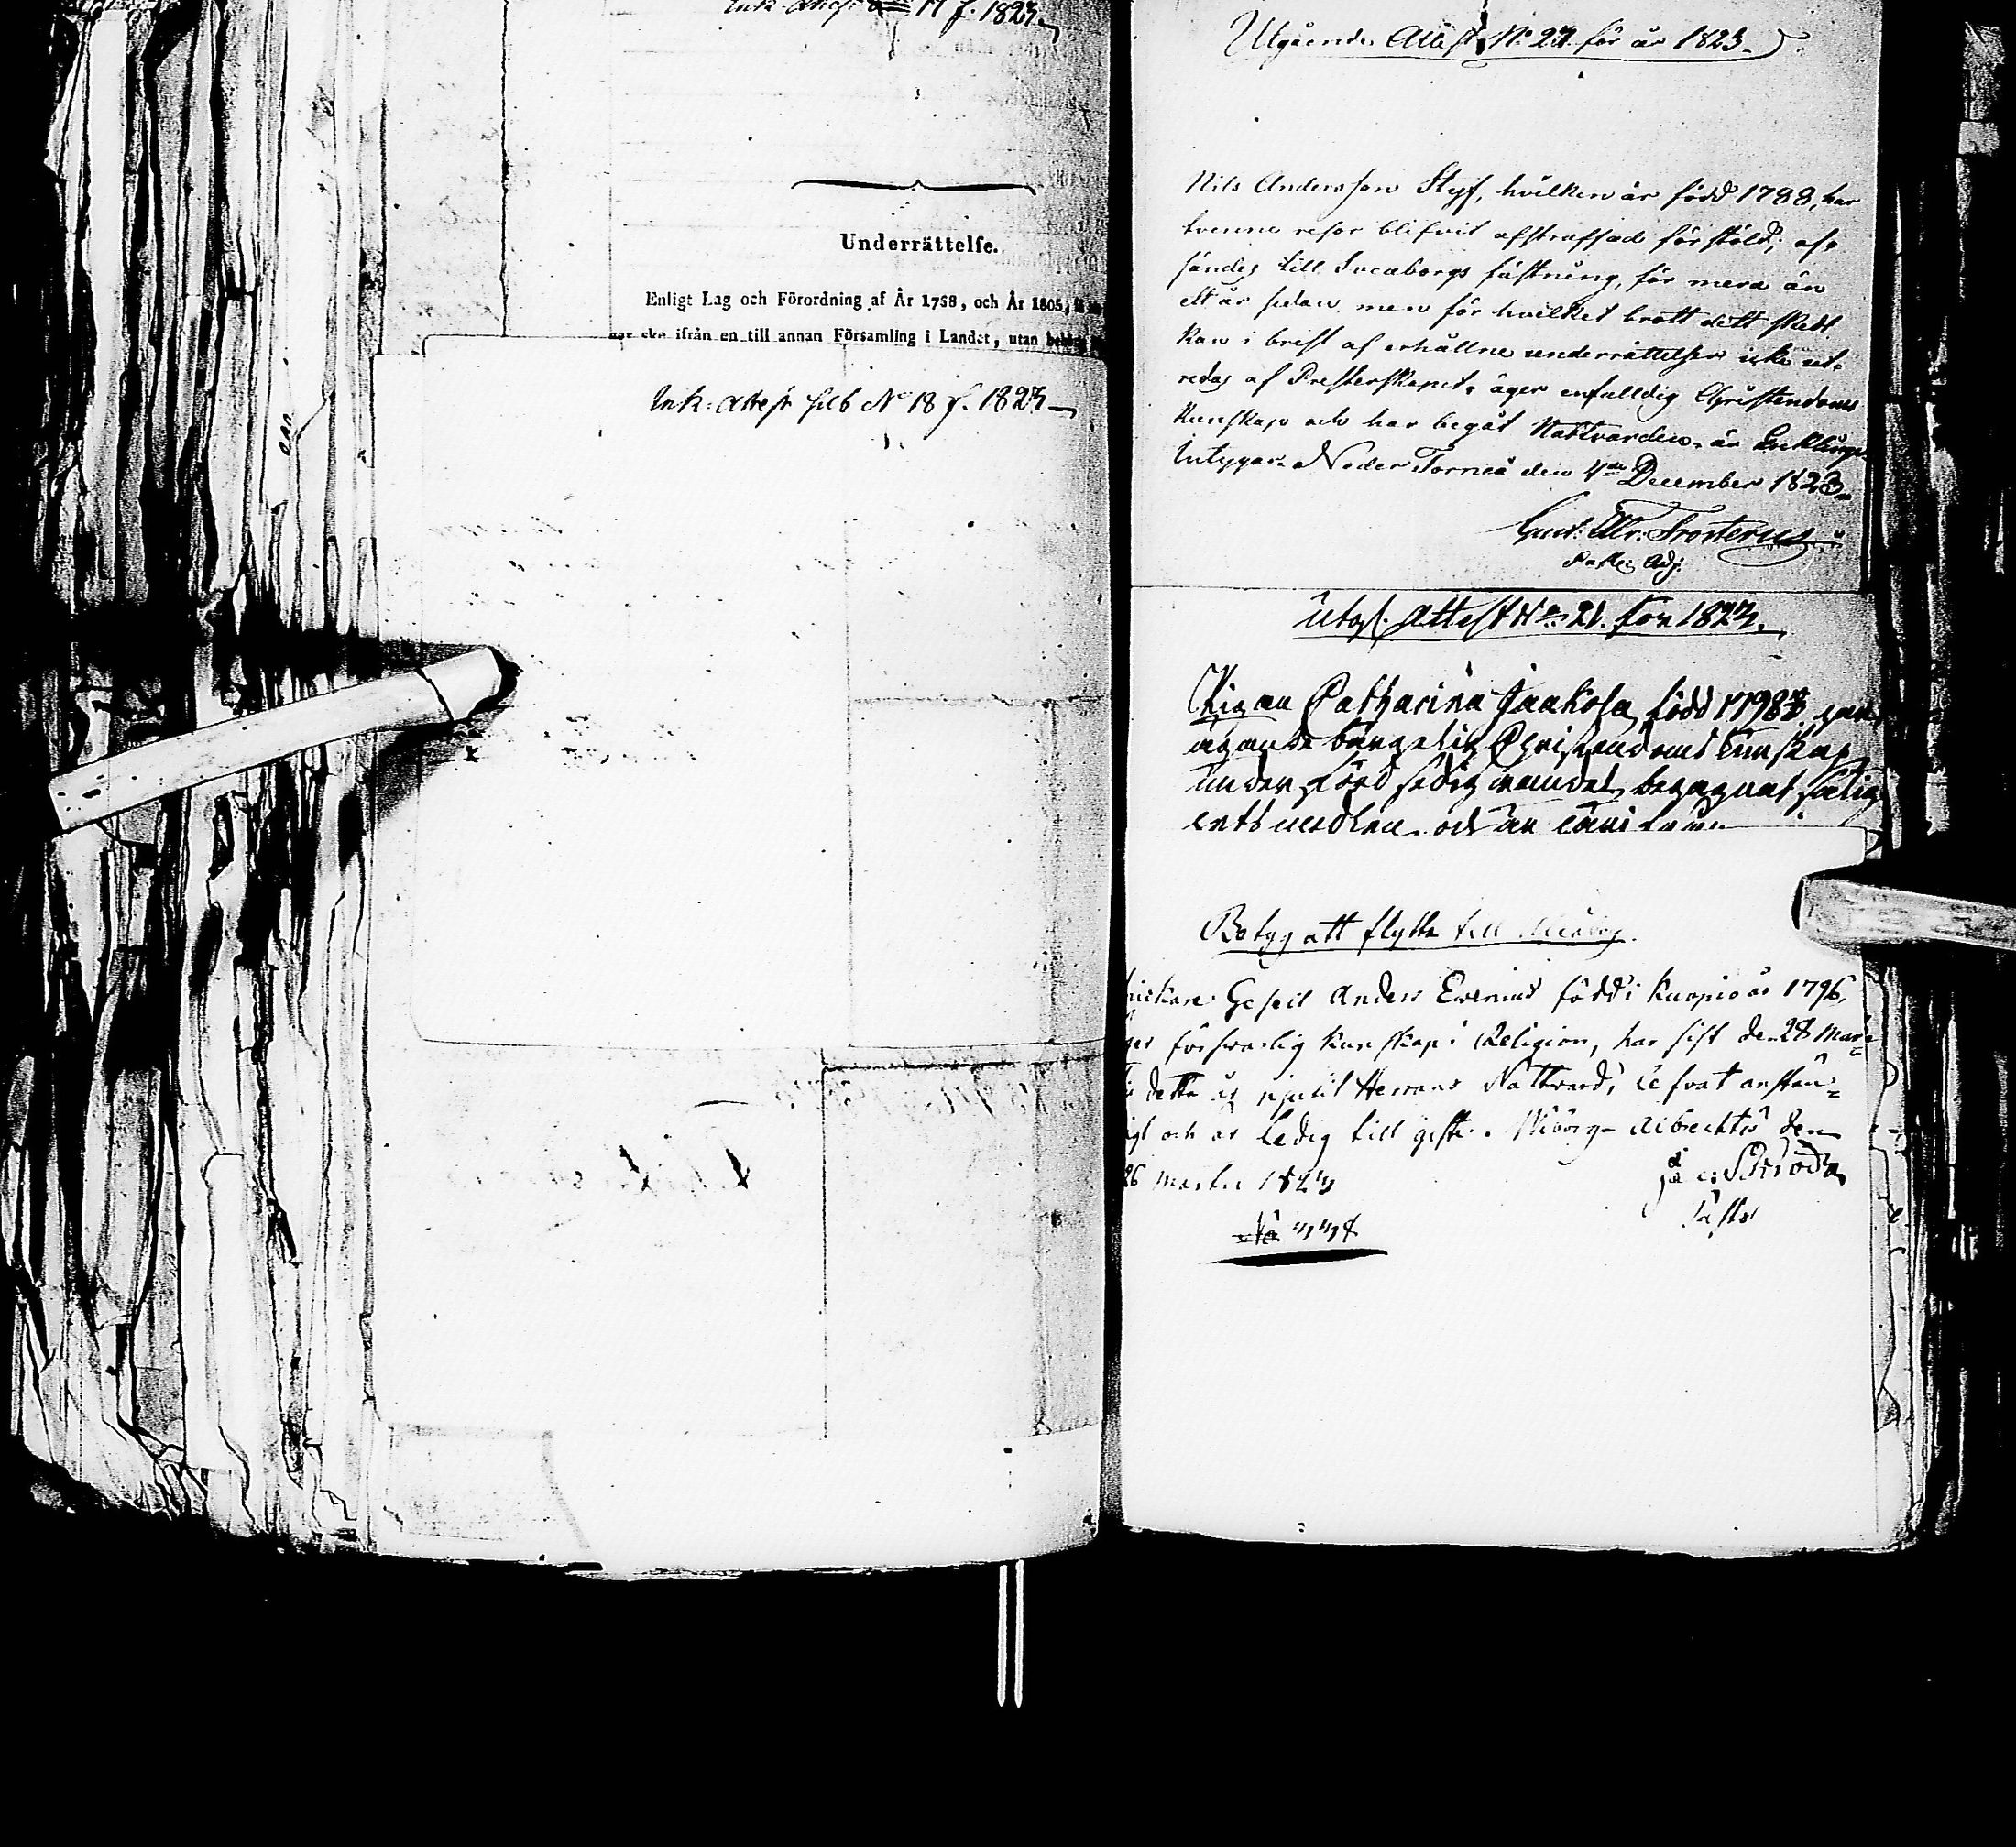 Ink: Attest N 17 f. 1823
Underrättelse.
Enligt Lag och Förordning af År 1758, och År 1805,
ske ifrån en till annan Församling i Landet, utan
Ink: Attest sub No 18 f. 1823
Utgående Attest No 27. för år 1823.
Nils Andersson Styf, hvilken är född 1788, har
tvenne resor blifvit afstraffad för stöld; af-
sändes till Sveaborgs fästning, för mera än
ett år sedan, men för hvilket brott dett skedt
kan i brist af erhållne underrättelser icke ut-
redas af Presterskapet, äger enfalldig Christendoms
kunskap och har begåt Nattvarden, är Enkling.
Intygar. Neder Torneå den 4de December 1823.
Gust: Adr: Frosterus
Past: Adj:
Utgl. Attest No 21. för 1823.
Pigan Catharina Jaakola, född 1798,
ägande Christendoms kunskap
under förd sedig vandel, begagnat salig
Betyg att flytta till
Gesell Anders Evenius född i Kuopio år 1796,
försvarlig kunskap i Religion, har sist den 28 Mar-
detta år njutit Herrans Nattvard, lefvat anstän-
och är ledig till gifte. Wiborg den
26 Martii 1823